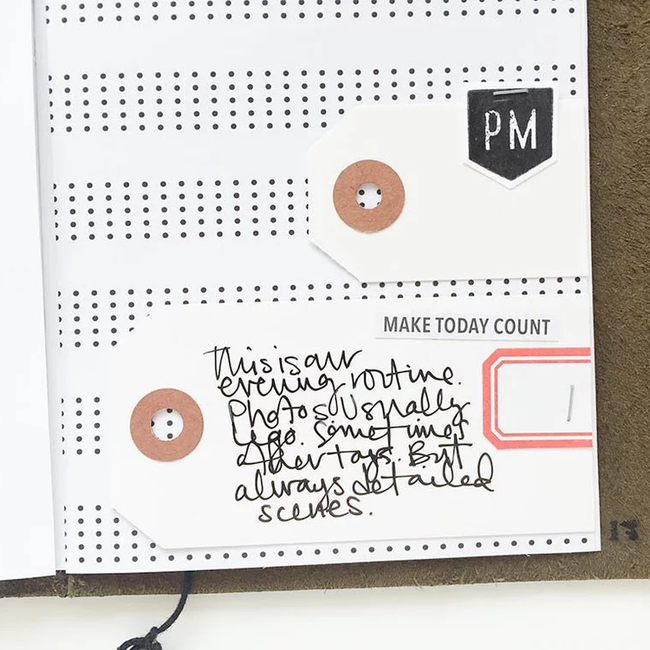 PM
MAKE TODAY COUNT
This is our
evening routine.
Photos Usually
Lego. Sometimes
other toys. But
always detailed
scenes.
13